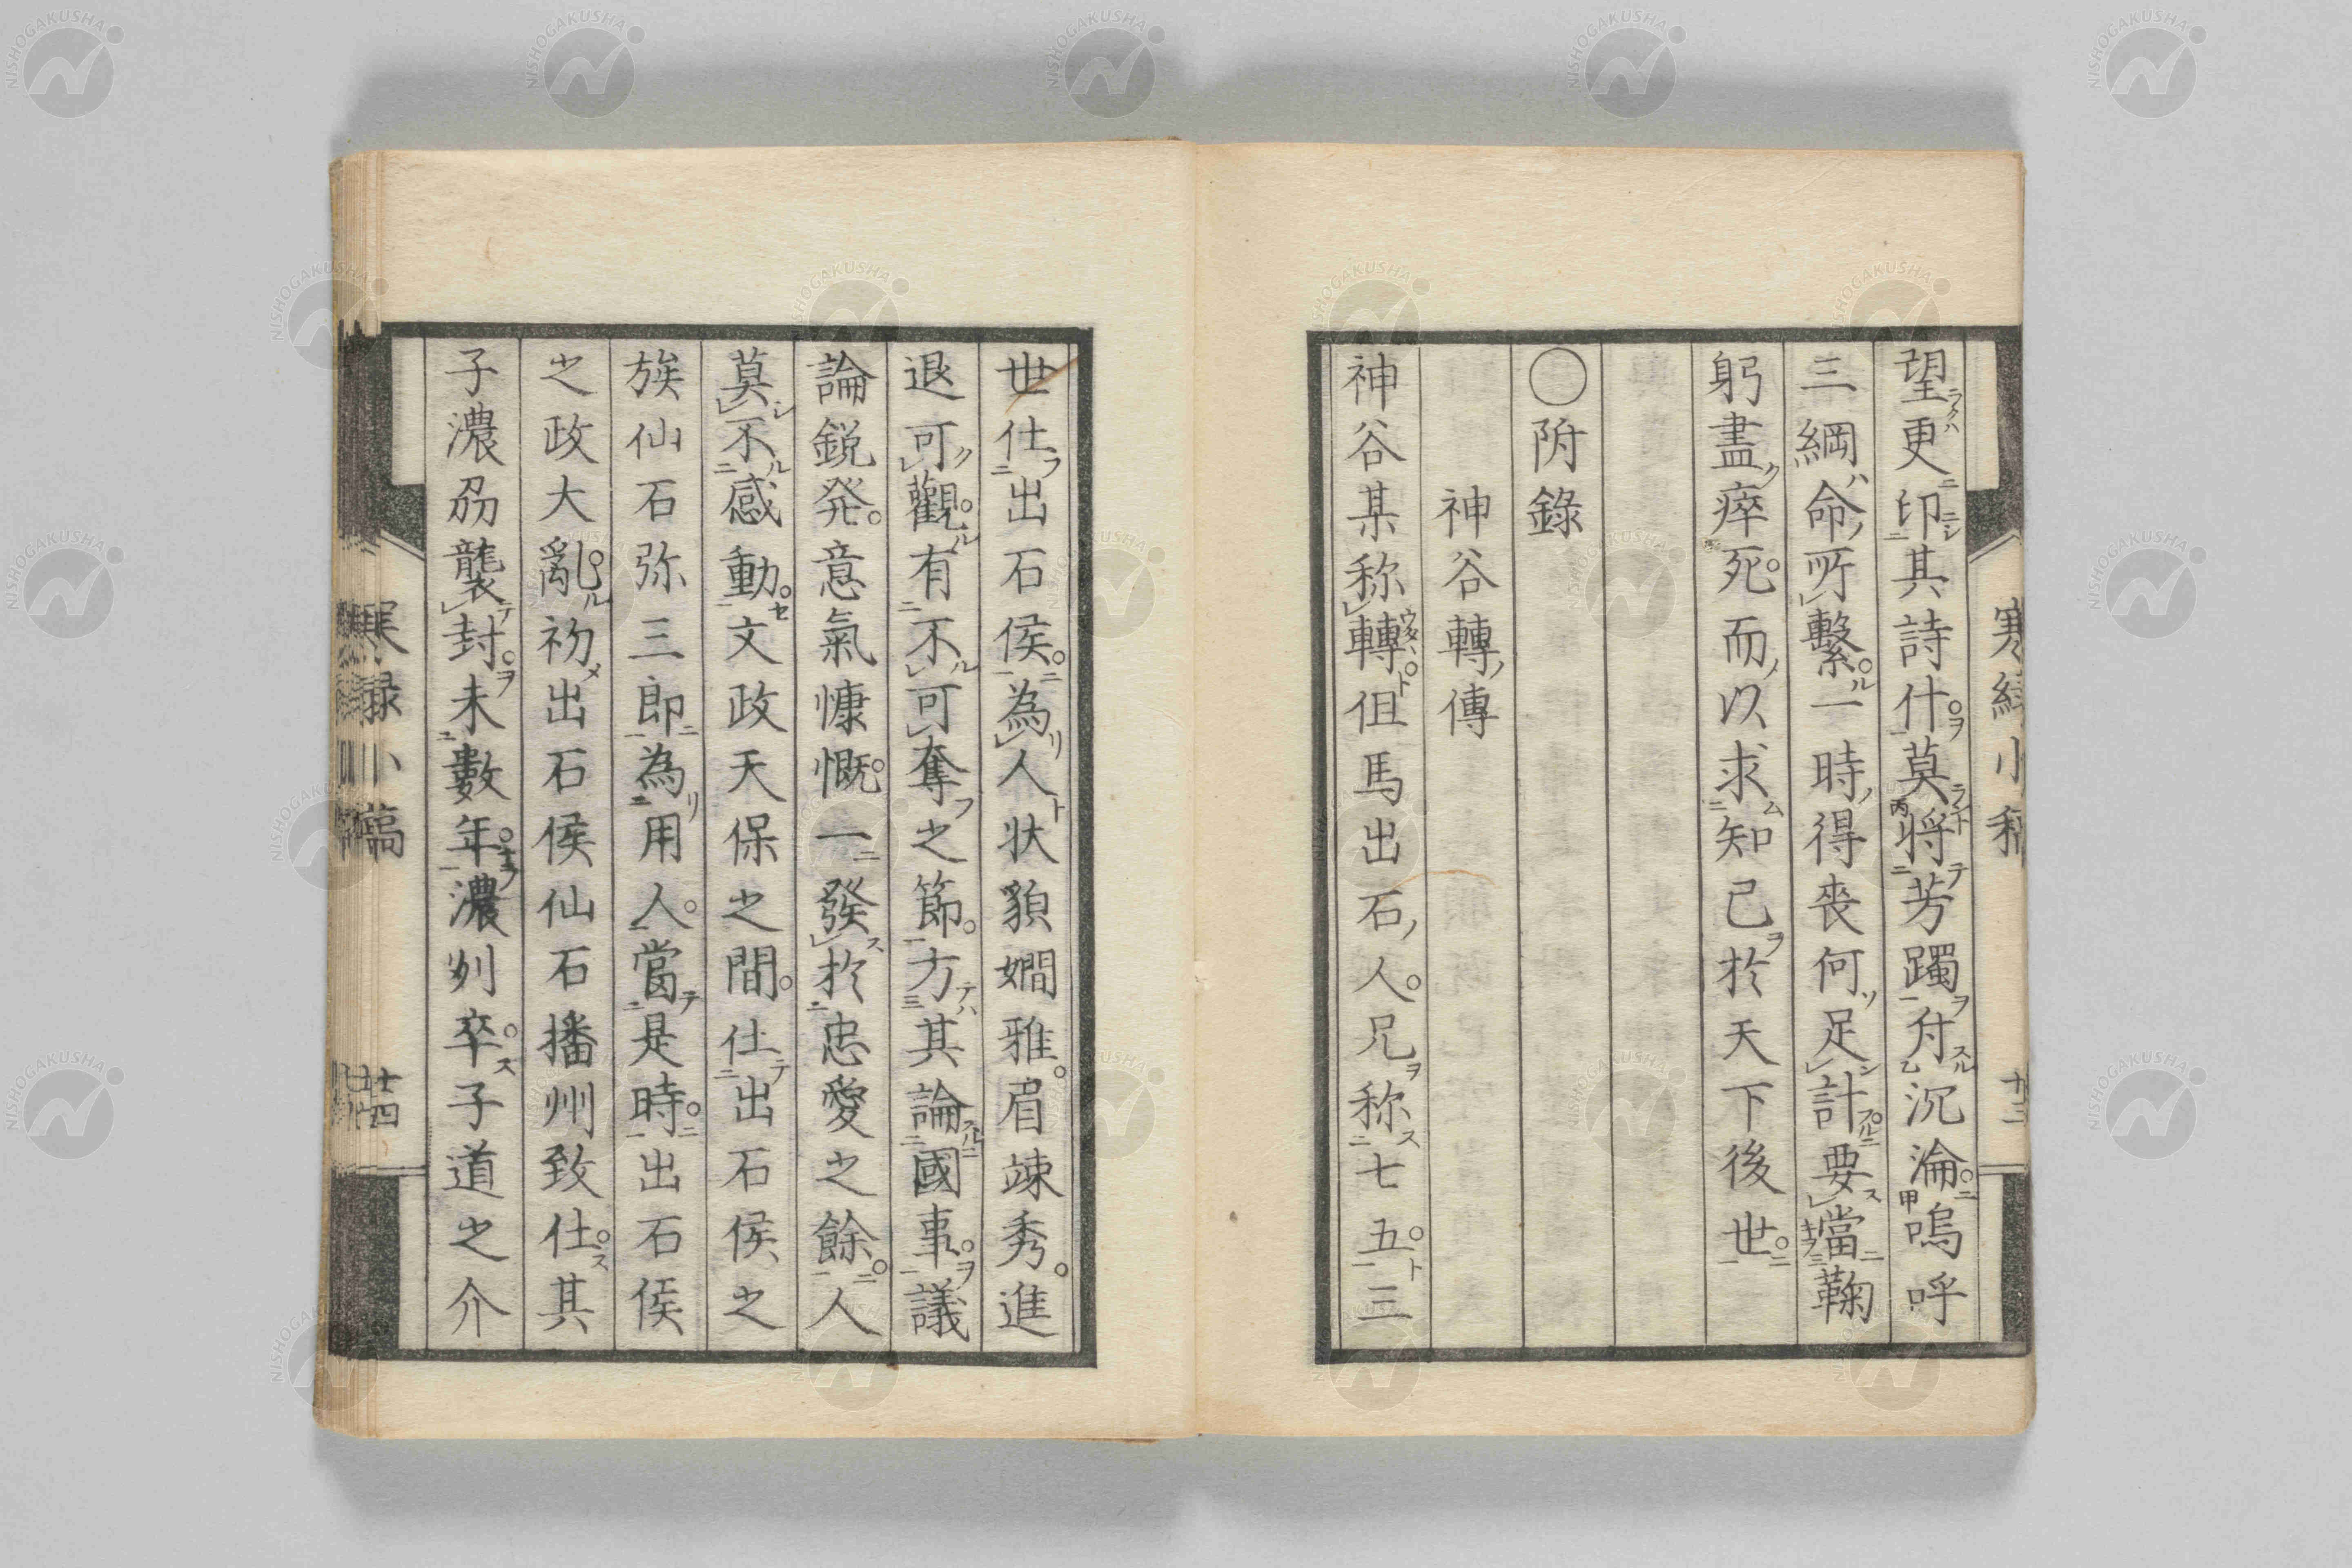 望更印其詩什莫将芳躅付沉淪嗚呼
三綱命所繫一時得喪何足計要當鞠
躬盡瘁死而以求知己於天下後世
〇附錄
神谷轉傳
神谷某称轉但馬出石人兄称七五三
世仕出石侯為人状貌嫺雅眉竦秀進
退可觀有不可奪之節方其論國事議
論鋭発意氣慷慨一發於忠愛之餘人
莫不感動文政天保之間仕出石侯之
族仙石弥三郎為用人當是時出石侯
之政大亂初出石侯仙石播州致仕其
子濃刕襲封未數年濃州卒子道之介
寒緑小稿
十三
寒緑小稿
十四
NISHOGAKUSHA